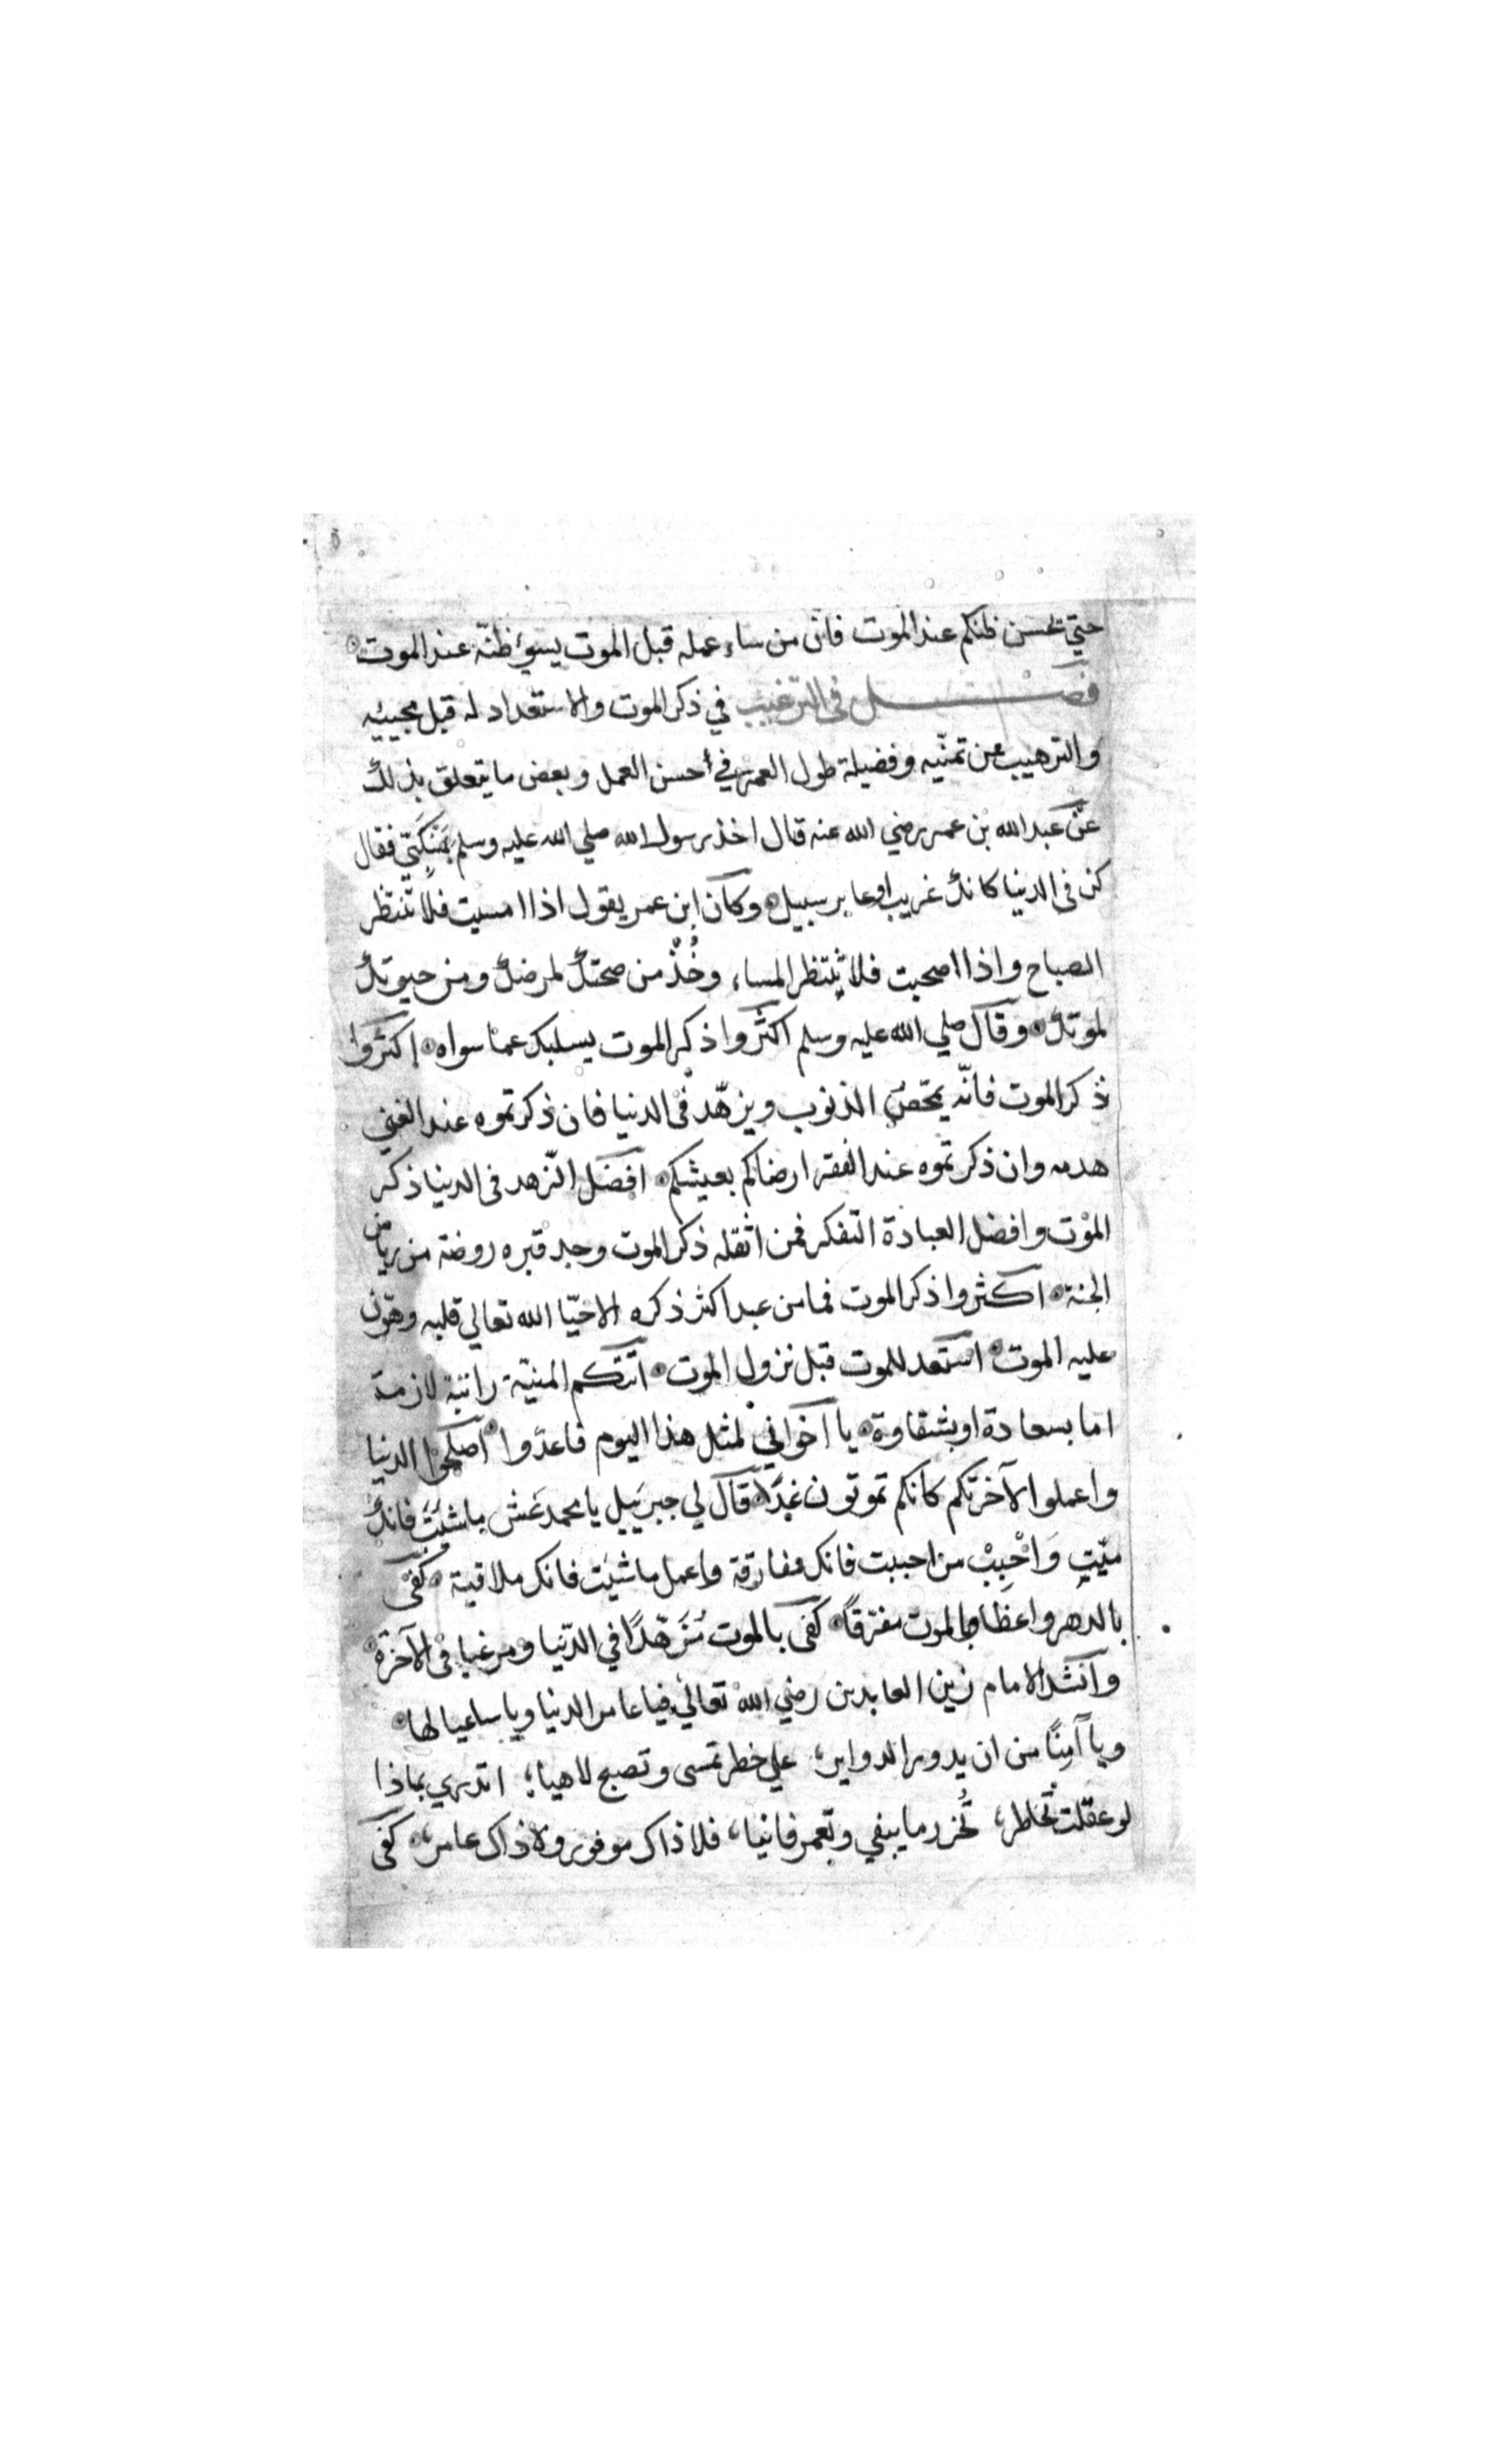 حتي تحسن ظنكم عند الموت فان من ساء عمله قبل الموت يسوئ ظنّه عند الموت
فصل في الترغيب في ذكر الموت والاستعداد له قبل مجيئه
والترهيب عن تمنّيه وفضيلة طول العمر في أحسن العمل وبعض ما يتعلق بذلك
عن عبد الله بن عمر رضي الله عنه قال اخذ رسول الله صلي الله عليه وسلم بمَنْكِبَيّ فقال
كن في الدنيا كانك غريب او عابر سبيل وكان ابن عمر يقول اذا امسيت فلا تنتظر
الصباح واذا اصبحت فلا تنتظر المساء وخُذْ من صحتك لمرضك ومن حيوتك
لموتك وقال صلي الله عليه وسلم اكثروا ذكر الموت يسلبك عما سواه اكثروا
ذكر الموت فانّه يمحّص الذنوب ويزهّد في الدنيا فان ذكرتموه عند الغني
هدمه وان ذكرتموه عند الفقر ارضاكم بعيشكم افضل الزّهد في الدنيا ذكر
الموت وافضل العبادة التفكر فمن اثقله ذكر الموت وجد قبره روضة من رياض
الجنة اكثروا ذكر الموت فما من عبد اكثر ذكره الا حيّا الله تعالي قلبه وهوّن
عليه الموت استعد للموت قبل نزول الموت اتتكم المنيّة راتبة لازمة
اما بسعادة او بشقاوة يا اخواني لمثل هذا اليوم فاعدّوا اصلحوا الدنيا
واعملوا لآخرتكم كانكم تموتون غدًا قال لي جبرييل يا محمد عش ما شئت فانك
ميّت وَاحْبِبْ من احببت فانك مفارقة واعمل ما شيئت فانك ملاقية كفى
بالدهر واعظا وبالموت مفرّقاً كفى بالموت مُزَهّدًا في الدّنيا ومرغبا في الآخرة
وانشد الامام زين العابدين رضي الله تعالي فيا عامر الدنيا ويا ساعيا لها
ويا آمِنًا من ان يدور الدواير علي خطر تمسى وتصبح لاهيا اتدري بماذا
لو عقلت تخاطر تُخرد ما يبقي وتعمر فانيا فلا ذاك موفور ولا ذاك عامر كفى